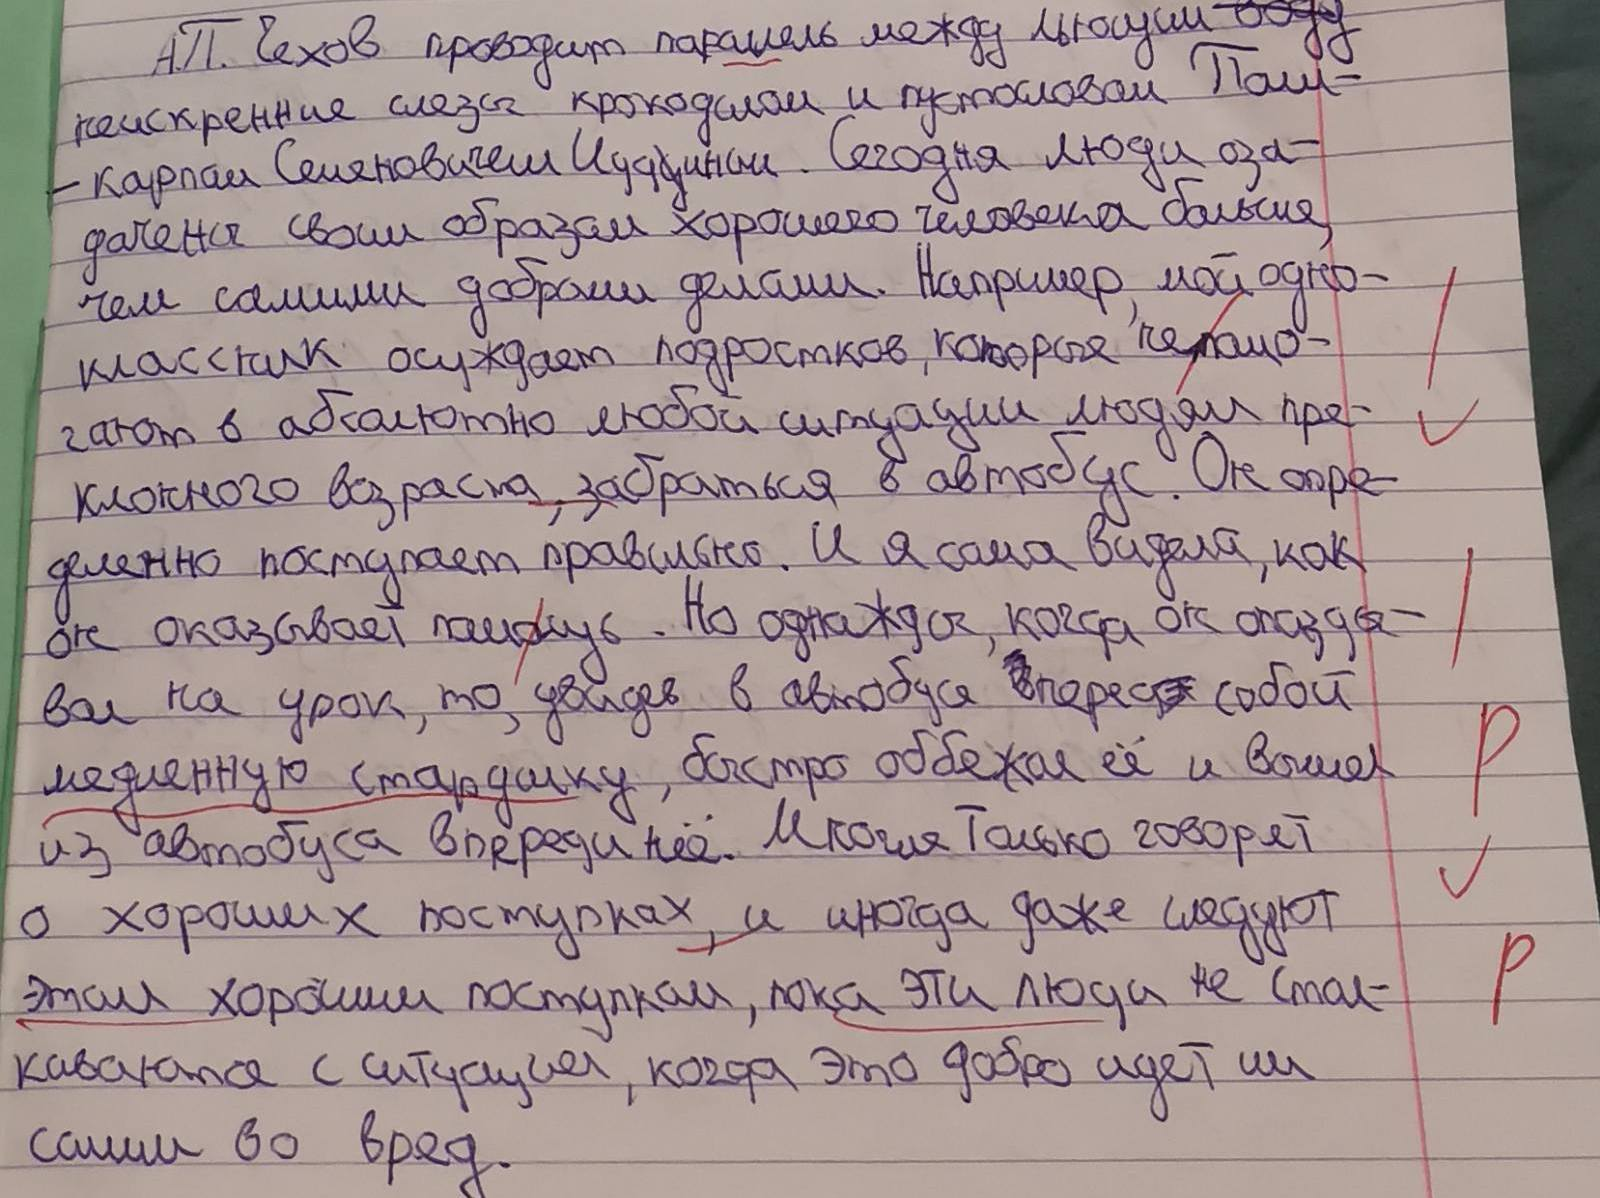 А.П. Чехов проводит паралель между льющим воду
неискренние слезы крокодилом и пустословом Поли-
-карпом Семеновичем Иудиным. Сегодня люди оза-
дачены своим образом хорошего человека больше,
чем самими добрыми делами. Например, мой одно-
классник осуждает подростков, которые не помо-
гают в абсолютно любой ситуации людям пре-
клонного возраста, забраться в автобус. Он опре-
деленно поступает правильно. И я сама видела, как
он оказывает помощь. Но однажды, когда он опазды-
вал на урок, то, увидев в автобусе впереди собой
медленную старушку, быстро оббежал её и вышел
из автобуса впереди неё. Многие только говорят
о хороших поступках, и иногда даже следуют
этим хорошим поступкам, пока эти люди не стал-
киваются с ситуацией, когда это добро идет им
самим во вред.
✓
✓
Р
Р